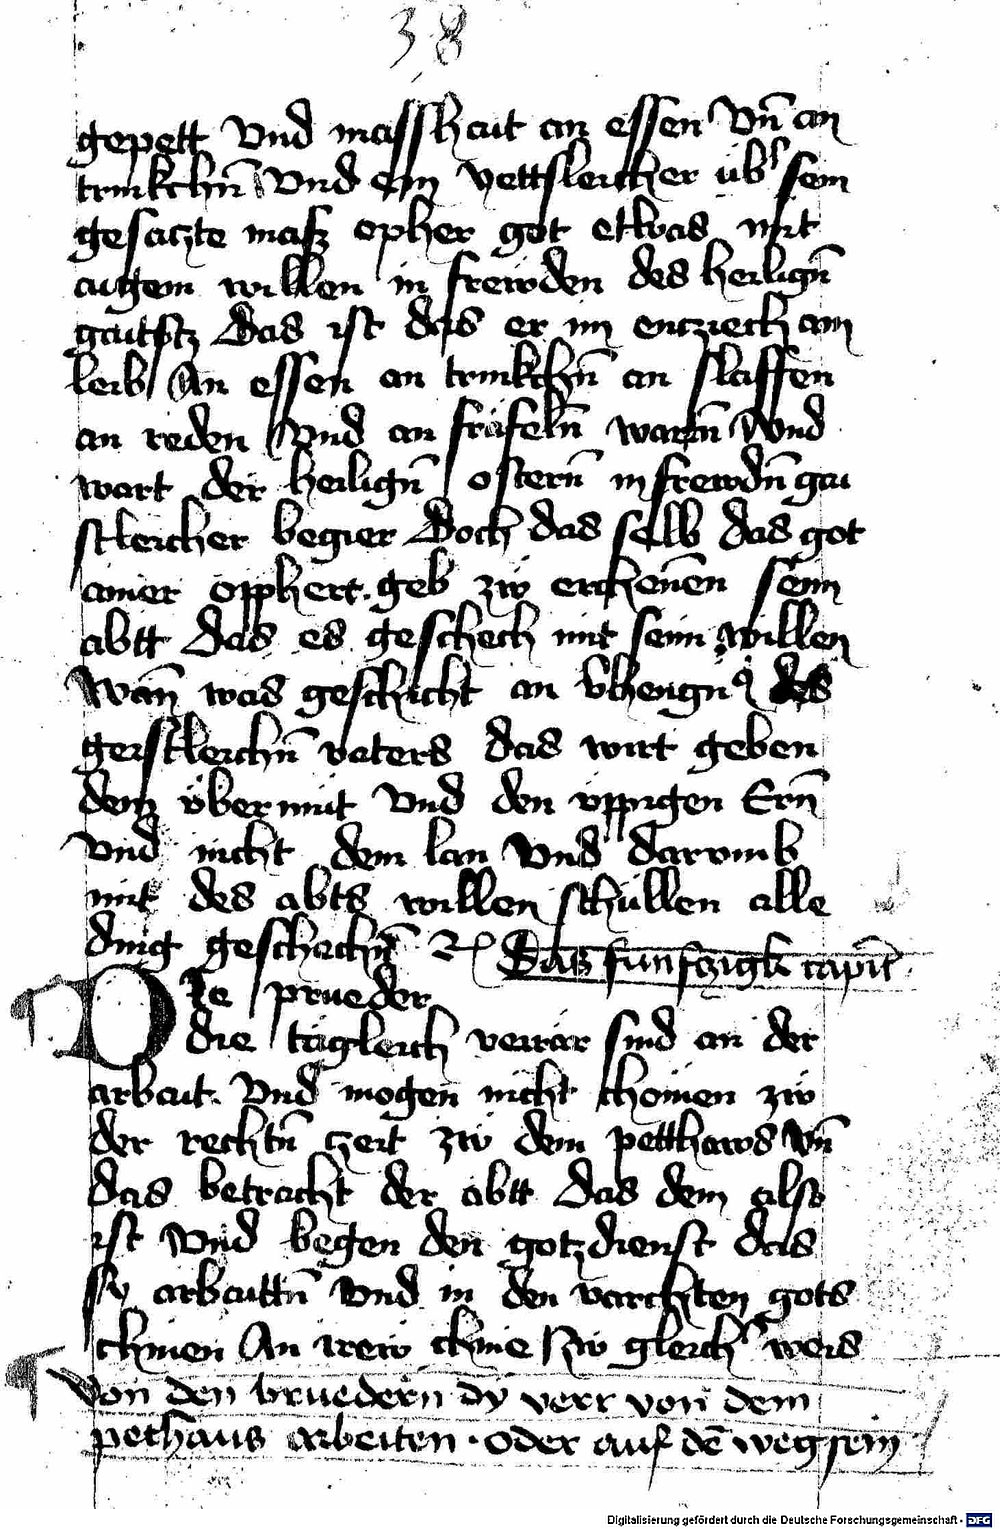 38
gepett Vnd masshait an essen Vn̄ an
trinkchn̄ Vnd ein yettsleicher üb sein
gesaczte masz opher got etbas mit
aigem willen in frewden des heilign̄
gaistz Das ist das er im encziech am
leib An essen an trinkchn̄ an slaffen
an reden Vnd an fräfeln̄ Vnd
wart der heilign̄ ostern̄ in frewdn̄ gai
stleicher begier Doch das selb das got
ainer opphert. geb zw erchenen seim
abtt Das es geschech mit seim willen
Wan̄ was geschicht an des
geistleichn̄ vaters das wirt geben
dem vbermüt Vnd den vppigen Ern̄
Vnd nicht dem lan Vnd darvmb
mit des abts willen schullen alle
ding geschechn̄ Das funfczigk capit̄
Die prueder
die tägleich verrär sind an der
arbait. Vnd mogen nicht chomen zw
der rechtn̄ czeit zw dem petthaws Vn̄
das betracht der abtt Das dem also
ist Vnd begen den gotzdienst das
sy arbaittn̄ Vnd in den varchten gots
chnien An irew chnie Zw gleich weis
Von den bruedern dy verr von dem
pethaus arbeiten. oder auf dē weg sein
Digitalisierung gefördert durch die Deutsche Forschungsgemeinschaft - DFG